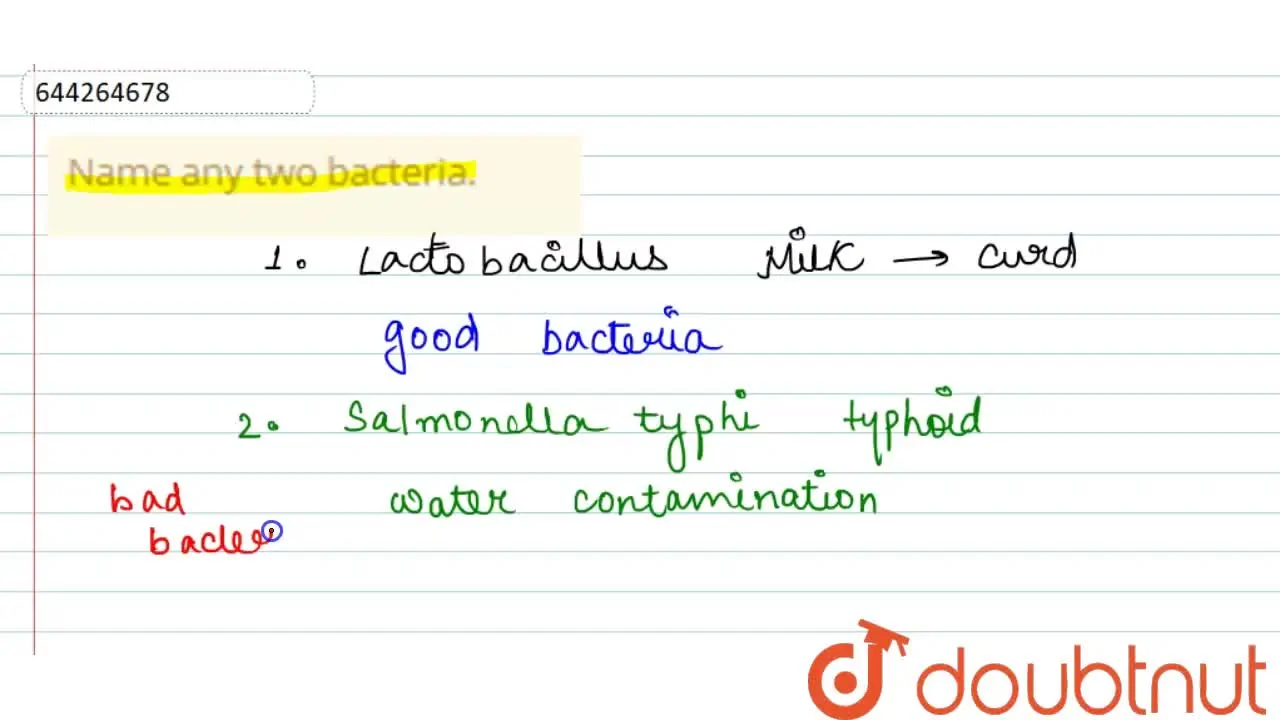 644264678
Name any two bacteria.
1. Lactobacillus Milk → Curd
good bacteria
2. Salmonella typhi typhoid
bad water contamination
bacter
doubtnut